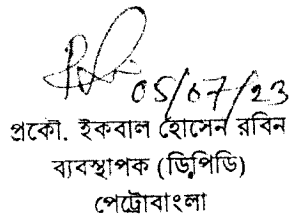 05/07/23
প্রকৌ. ইকবাল হোসেন রবিন
ব্যবস্থাপক (ডিপিডি)
পেট্রোবাংলা